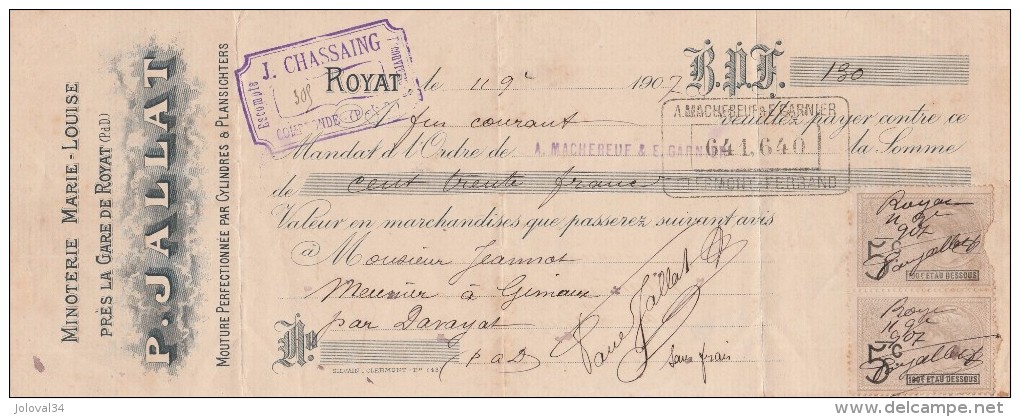 MINOTERIE MARIE-LOUISE
PRÈS LA GARE DE ROYAT (P.d.D)
P. JALLAT
MOUTURE PERFECTIONNÉE PAR CYLINDRES & PLANSICHTERS
J. CHASSAING
Escompte
308
ROYAT, le 11 9e 1907 B.P.F. 130
A. MACHEBEUF & E. GARNIER
fin courant veuillez payer contre ce
Mandat à l'Ordre de A. MACHEBEUF & E. GARNIER 641,640 la Somme
de cent trente francs
CLERMONT-FERRAND
Valeur en marchandises que passerez suivant avis
à Monsieur Jeannot
Meunier à Gimeaux
par Davayat
No
P d D
Paul Jallat
Sans frais
CLERMONT
Royat
11 9e
907
Paul Jallat
5c
100F ET AU DESSOUS
Royat
11 9e
907
Paul Jallat
5c
100F ET AU DESSOUS
joloval34
delcampe.net